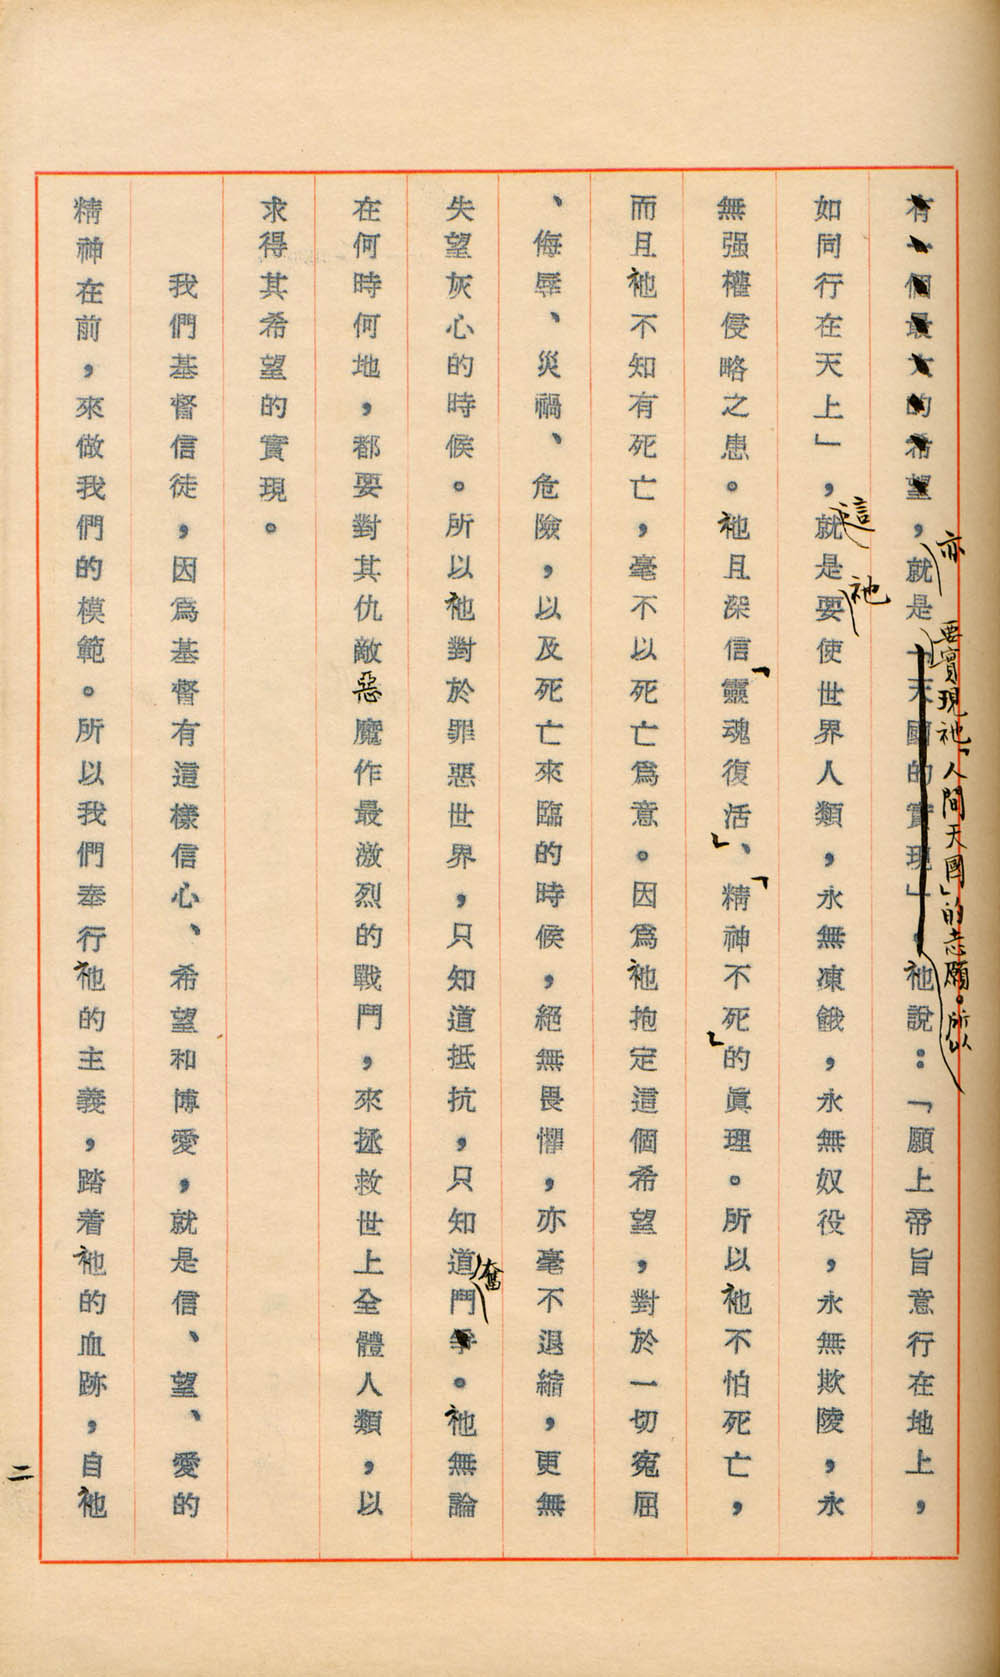 有一個最大的希望，就是「天國的實現」。祂說：「願上帝旨意行在地上，
亦
要實現祂「人間天國」的志願。所以
如同行在天上」，就是要使世界人類，永無凍餓，永無奴役，永無欺陵，永
這
祂
無强權侵略之患。祂且深信「靈魂復活」、「精神不死」的眞理。所以祂不怕死亡，
而且祂不知有死亡，毫不以死亡爲意。因爲祂抱定這個希望，對於一切寃屈
、侮辱、災禍、危險，以及死亡來臨的時候，絕無畏懼，亦毫不退縮，更無
失望灰心的時候。所以祂對於罪惡世界，只知道抵抗，只知道鬥爭。祂無論
奮
在何時何地，都要對其仇敵惡魔作最激烈的戰鬥，來拯救世上全體人類，以
求得其希望的實現。
我們基督信徒，因爲基督有這樣信心、希望和博愛，就是信、望、愛的
精神在前，來做我們的模範。所以我們奉行祂的主義，踏着祂的血跡，自祂
二